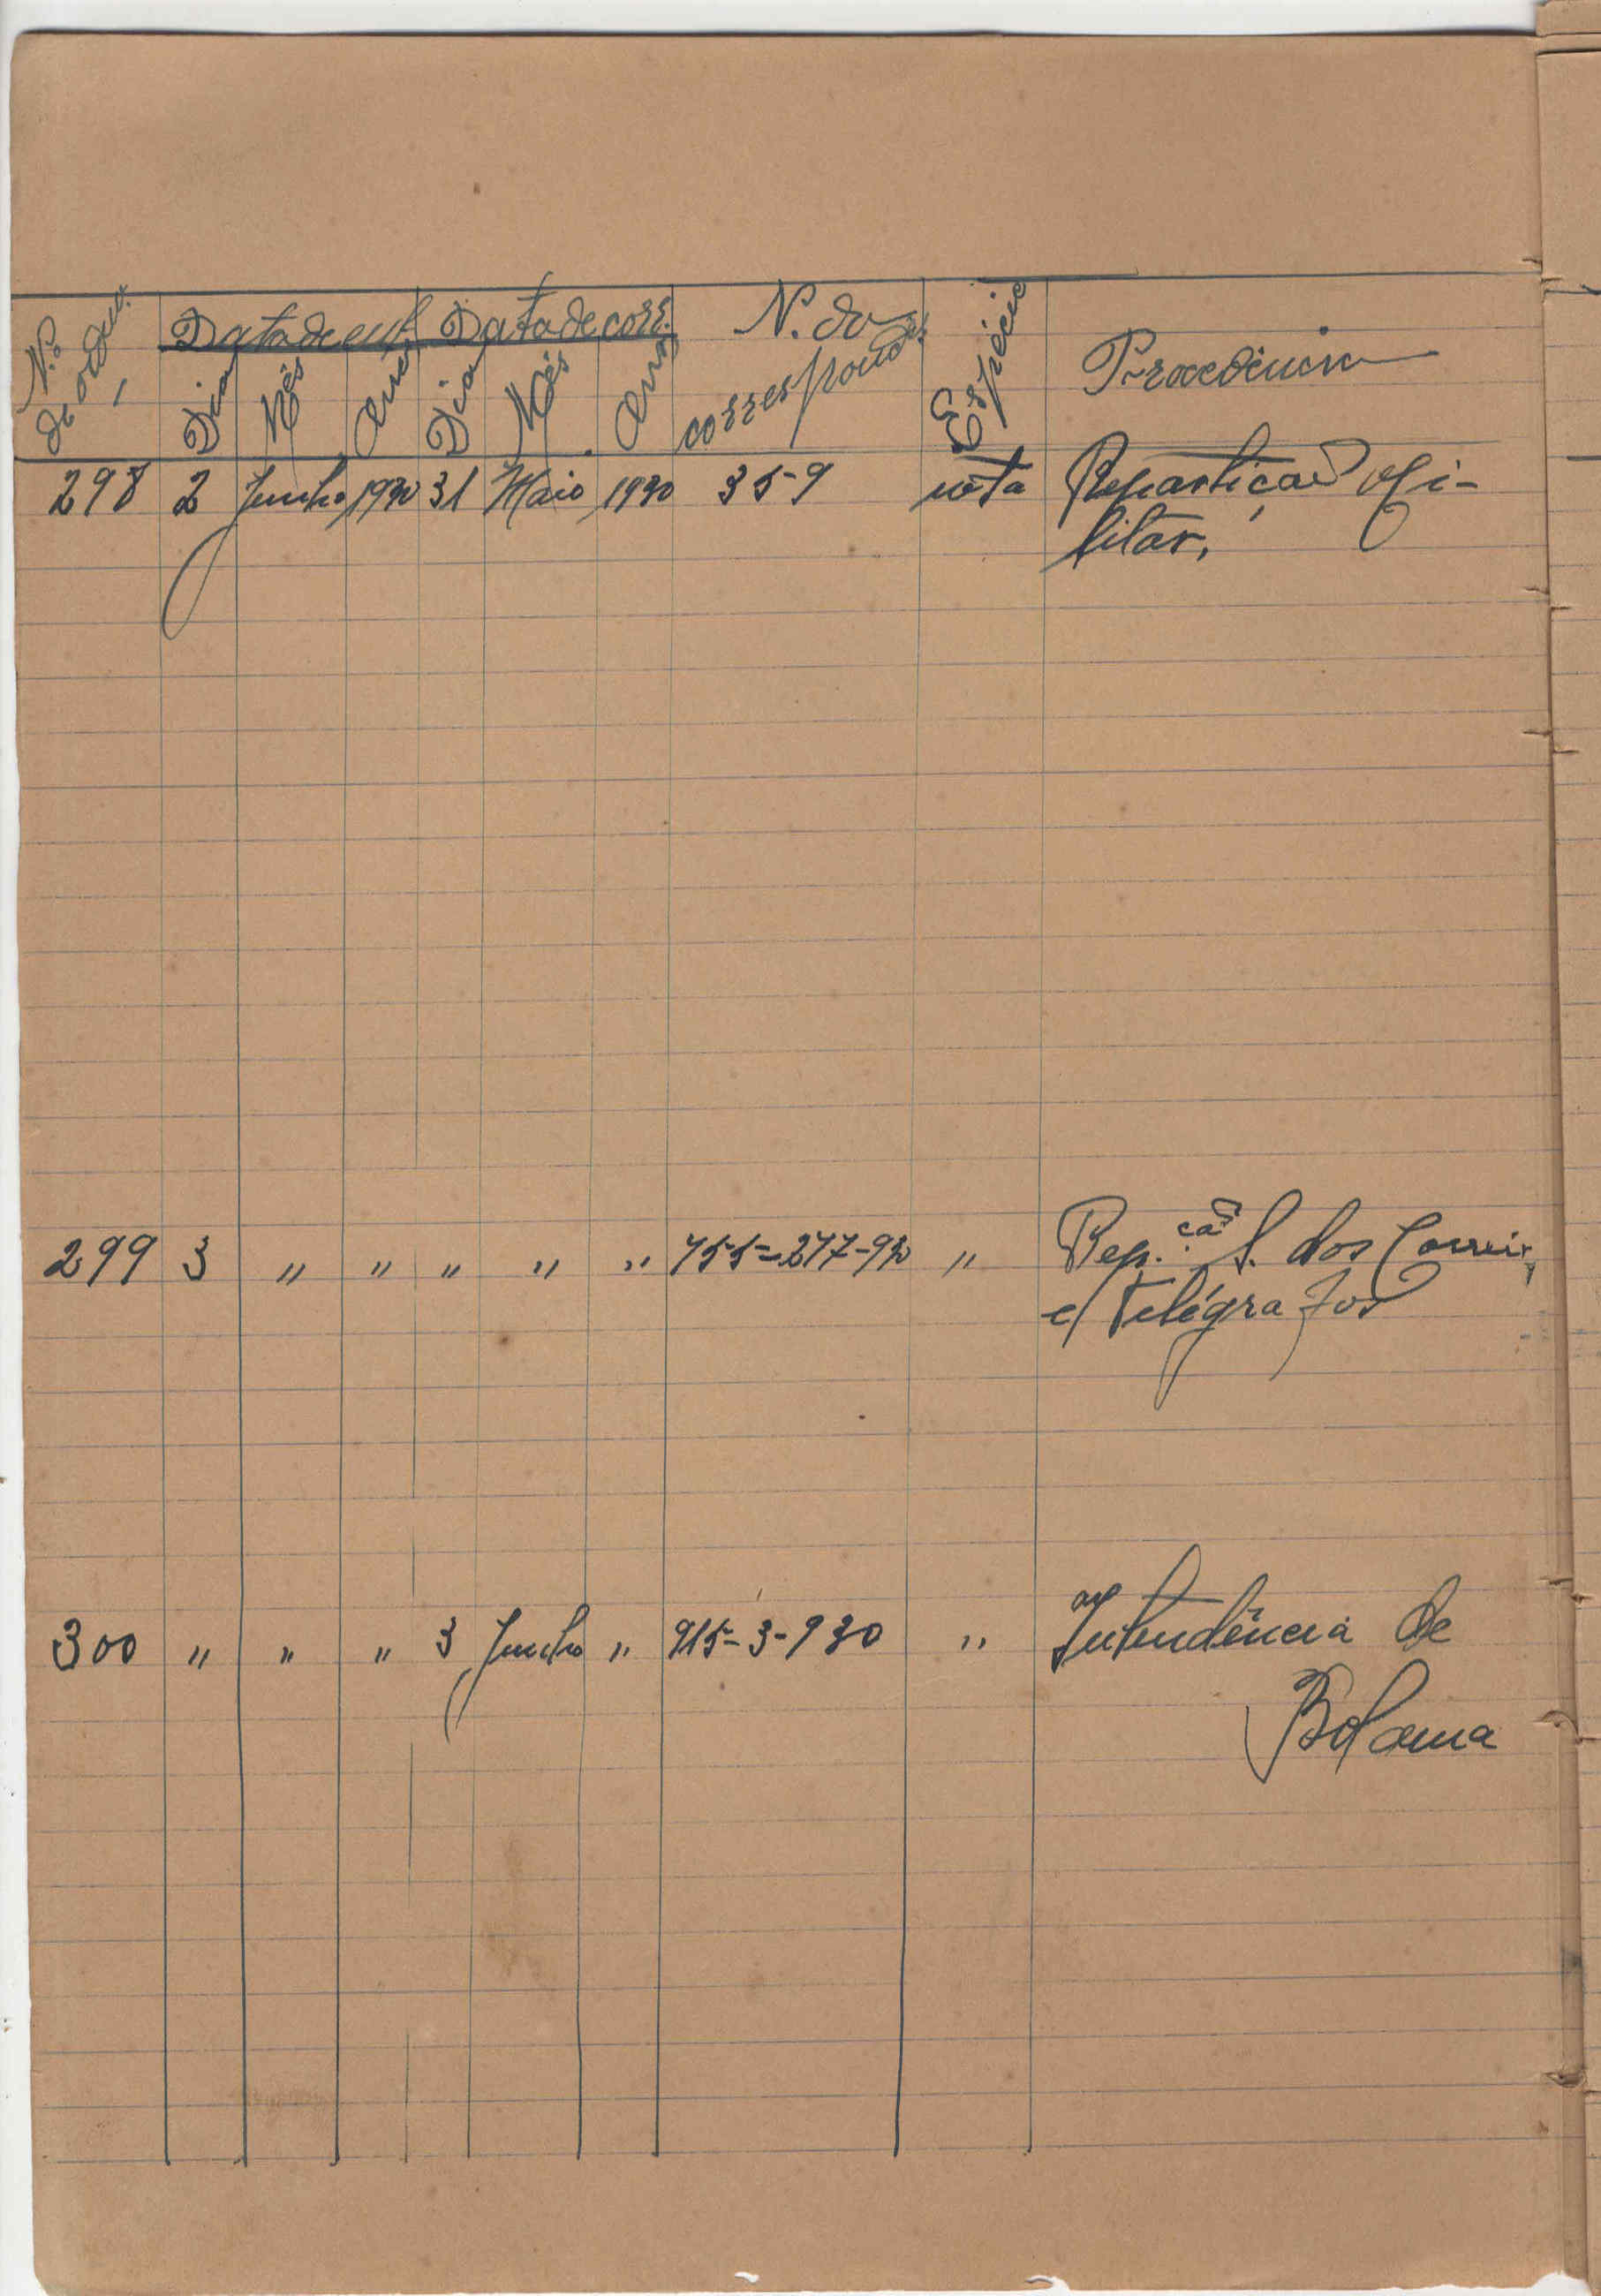 N.º de ordem Data de ent. Data de corr. N. do correspond. Espécie Procedência
Dia Mês Ano Dia Mês Ano
298 2 Junho 1930 31 Maio 1930 35-9 nota Repartição Mi-
litar,
299 3 " " " " " 755=277-930 " Rep.ção S. dos Correios
e Telégrafos
300 " " " 3 Junho " 915-3-930 " Intendência de
Bolama